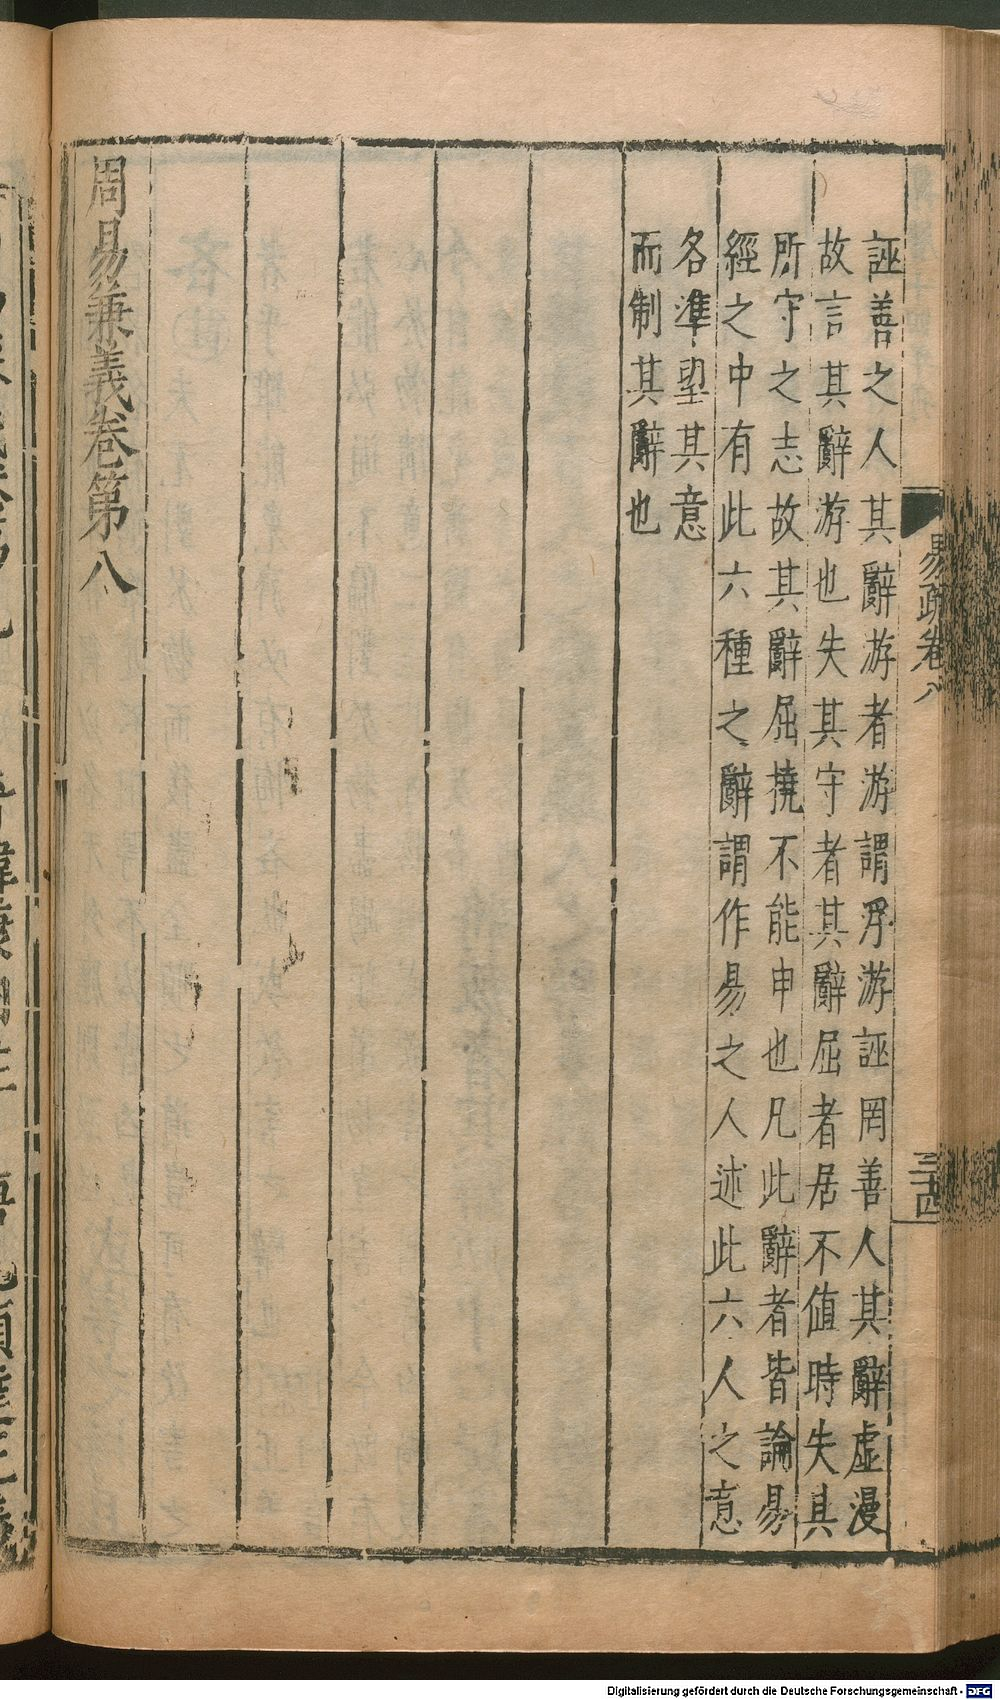 易疏卷八
三十四
誣善之人其辭游者游謂浮游誣罔善人其辭虛漫
故言其辭游也失其守者其辭屈者居不值時失其
所守之志故其辭屈撓不能申也凡此辭者皆論易
經之中有此六種之辭謂作易之人述此六人之意
各準望其意
而制其辭也
周易兼義卷第八
Digitalisierung gefördert durch die Deutsche Forschungsgemeinschaft - DFG